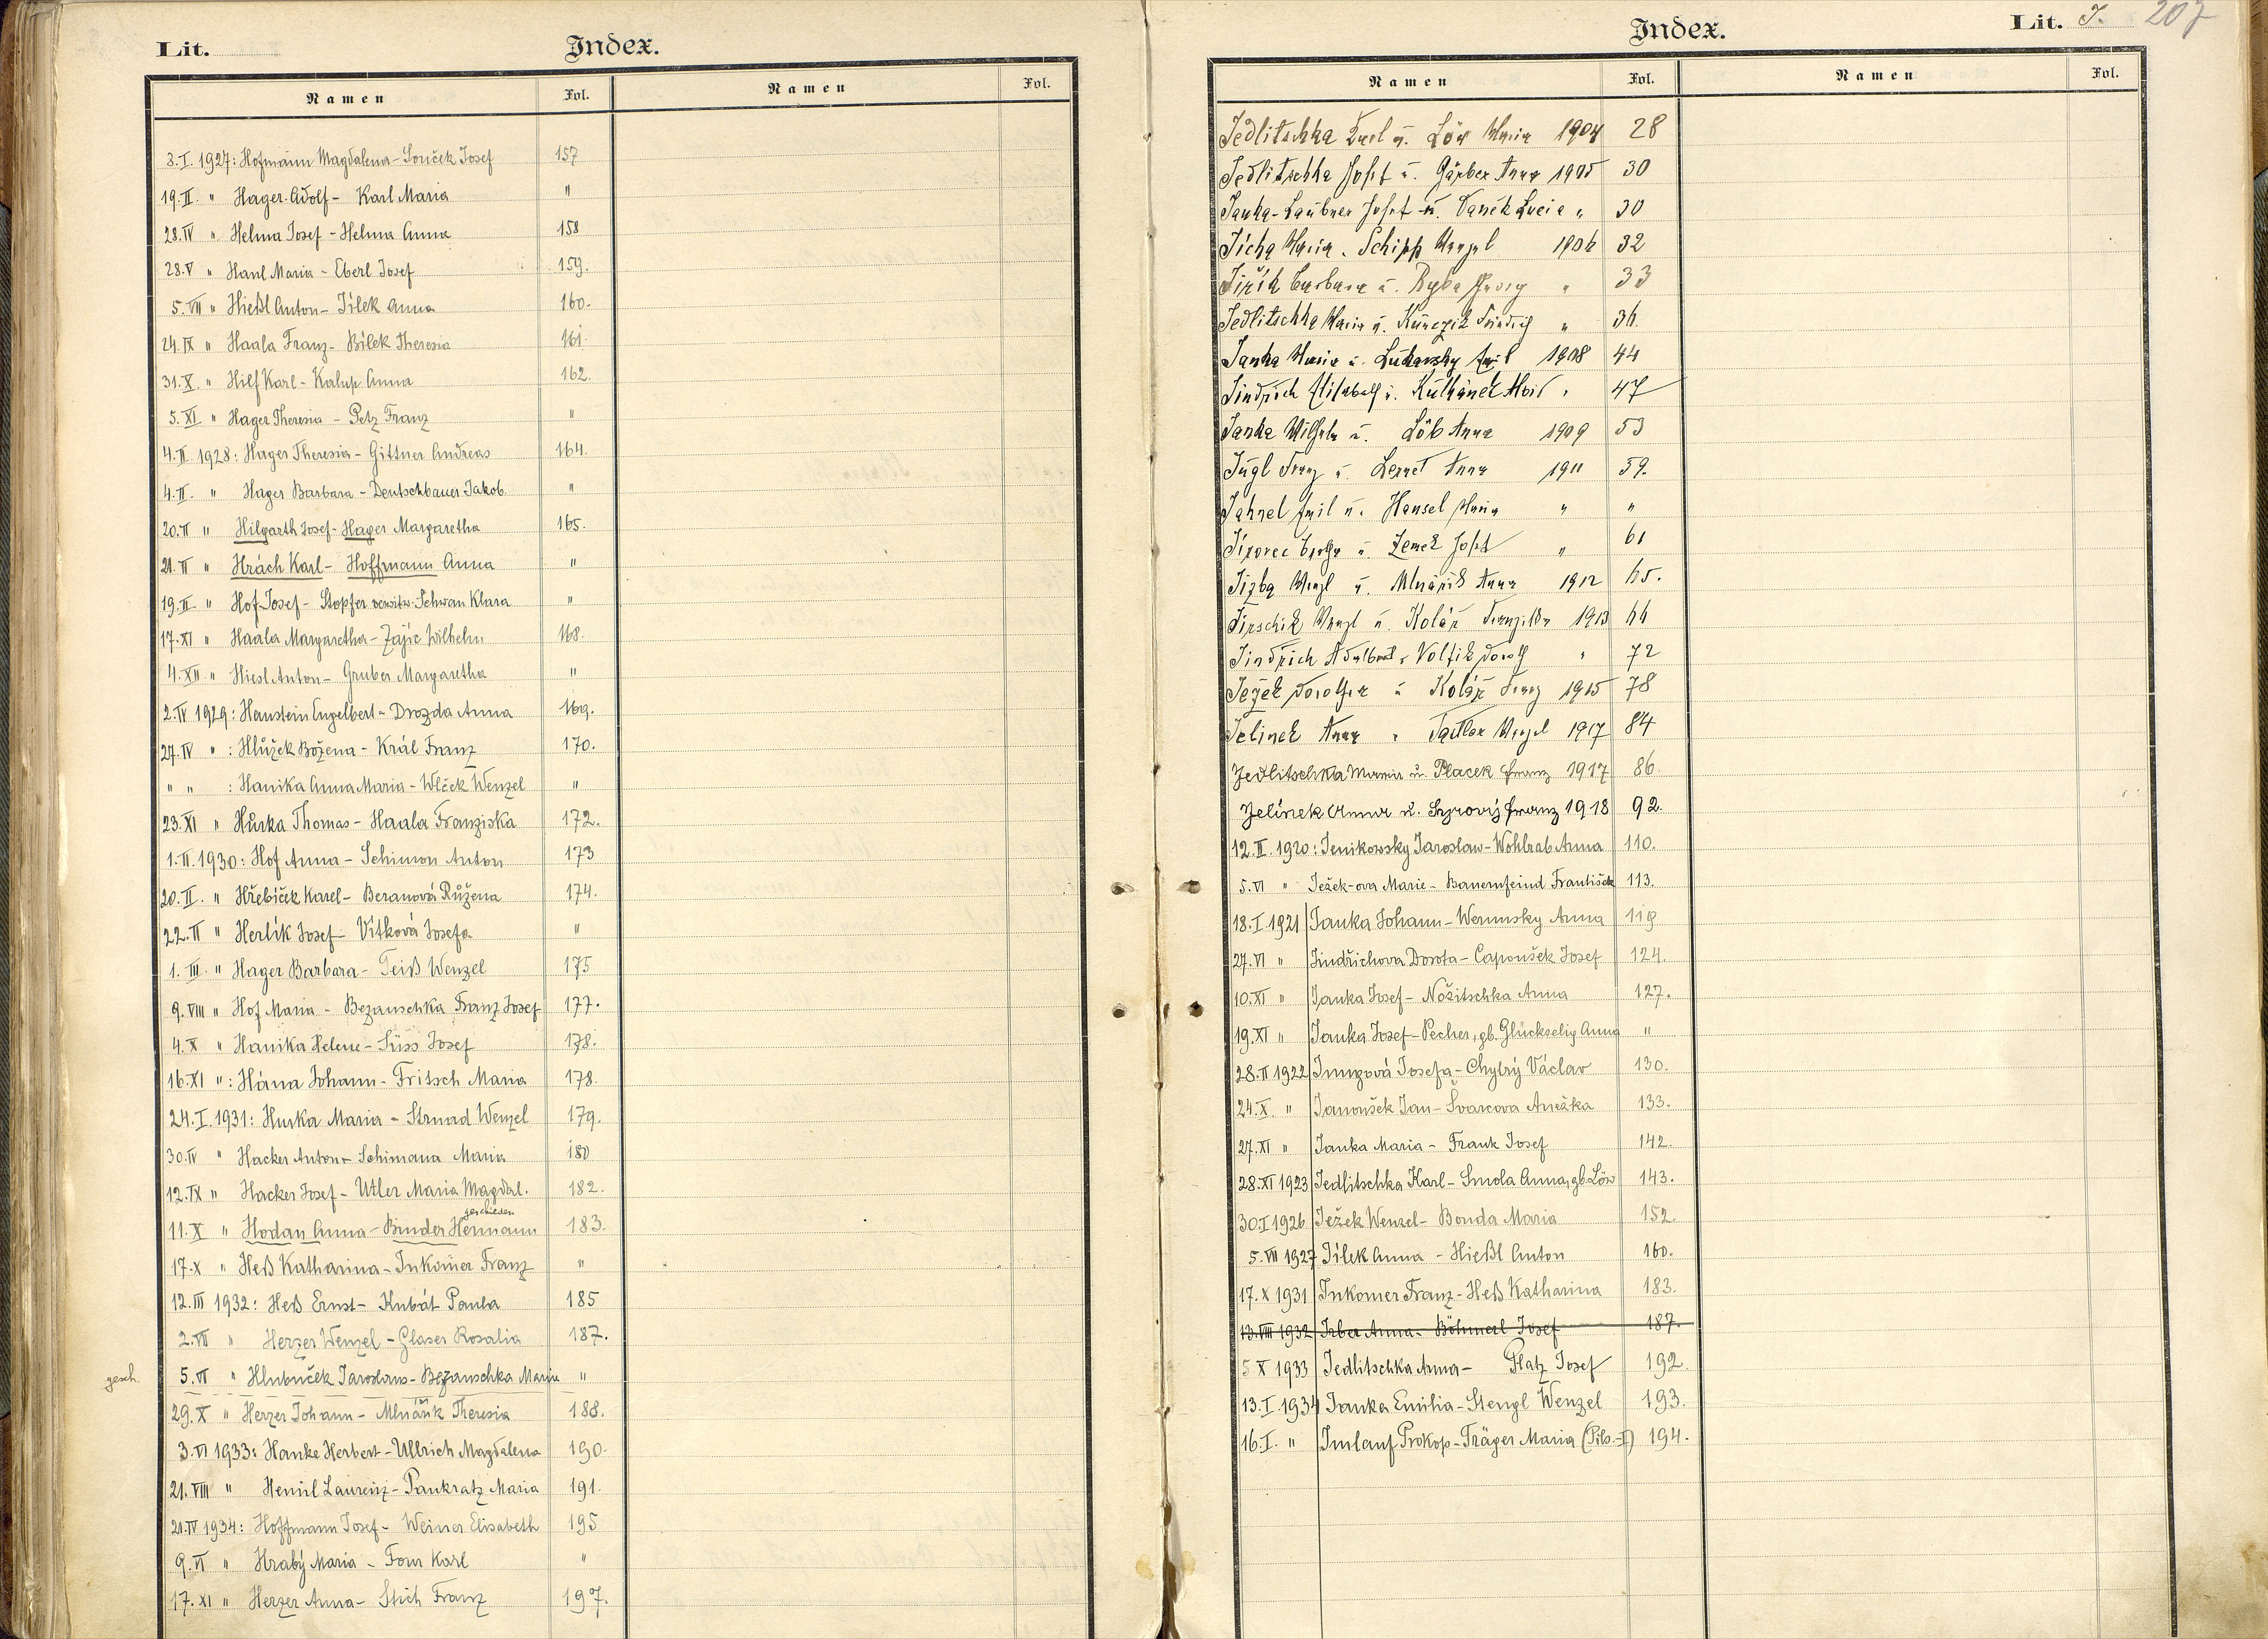 Lit.
Index.
Namen Fol. Namen Fol.
3.I. 1927: Hofmann Magdalena - Souček Josef 157
19.II. " Hager Adolf - Karl Maria "
28.IV " Helma Josef - Helma Anna 158
28.V " Hanl Maria - Eberl Josef 159.
5.VII " Hießl Anton - Jílek Anna 160.
24.IX " Haala Franz - Bílek Theresia 161.
31.X. " Hilf Karl - Kalup Anna 162.
5.XI " Hager Theresia - Petz Franz "
4.II. 1928: Hager Theresia - Gittner Andreas 164.
4.II. " Hager Barbara - Deutschbauer Jakob "
20.II " Hilgarth Josef - Hager Margaretha 165.
21.II " Hrách Karl - Hoffmann Anna "
19.II. " Hof Josef - Stopfer verwitw. Schwan Klara "
17.XI " Haala Margaretha - Zajíc Wilhelm 168.
4.XII. " Hiesl Anton - Gruber Margaretha "
2.IV 1929: Hanstein Engelbert - Drozda Anna 169.
27.IV " : Hlůžek Božena - Král Franz 170.
" " : Hanika Anna Maria - Wlček Wenzel "
23.XI " Hůrka Thomas - Haala Franziska 172.
1.II. 1930: Hof Anna - Schimon Anton 173
20.II. " Hřebíček Karel - Beranová Růžena 174.
22.II " Herlík Josef - Vítková Josefa "
1.III. " Hager Barbara - Teiß Wenzel 175
9.VIII " Hof Maria - Bezanschka Franz Josef 177.
4.X " Hanika Helene - Süss Josef 178.
16.XI " : Hána Johann - Fritsch Maria 178.
24.I. 1931: Hurka Maria - Strnad Wenzel 179.
30.IV " Hacker Anton - Schimana Maria 180
12.IX " Hacker Josef - Utler Maria Magdal. 182.
geschieden
11.X " Hodan Anna - Binder Hermann 183.
17.X " Heß Katharina - Inkomer Franz "
12.III 1932: Heß Ernst - Kubát Paula 185
2.VII " Herzer Wenzel - Glaser Rosalia 187.
gesch. 5.VI " Hlubuček Jaroslaus - Bezanschka Marie "
29.X " Herzer Johann - Mlnářik Theresia 188.
3.VI 1933: Hanke Herbert - Ullrich Magdalena 190.
21.VIII " Heml Laurenz - Pankratz Maria 191.
21.IV 1934: Hoffmann Josef - Weiner Elisabeth 195
9.VI " Hrabý Maria - Four Karl "
17.XI " Herzer Anna - Stich Franz 197.
Index.
Lit. J. 207
Namen Fol. Namen Fol.
Jedlitschka Karl u. Löw Maria 1904 28
Jedlitschka Josef u. Gärber Anna 1905 30
Janka-Laubner Josef u. Vaněk Lucia " 30
Jícha Maria u. Schipp Wenzel 1906 32
Jiřík Barbara u. Ryba Georg " 33
Jedlitschka Maria u. Friedrich " 36.
Janka Maria u. Lukavsky Emil 1908 44
Jindřich Elisabeth u. Kulhánek Alois " 47
Janka Wilhelm u. Löb Anna 1909 53
Jügl Franz u. Anna 1911 59.
Jahnel Emil u. Hensel Maria " "
u. Zemek Josef " 61
Jizba Wenzl u. Mlnářik Anna 1912 65.
Jirschik Wenzl u. Kolář Franziska 1913 66
Jindřich Adalbert u. Volfik " 72
Ježek Dorothea u. Kolář Franz 1915 78
Jelinek Anna " Wenzel 1917 84
Jedlitschka Maria u. Placek Franz 1917 86.
Jelínek Anna u. Syrový Franz 1918 92.
12.II. 1920: Jenikowsky Jaroslaw - Wohlrab Anna 110.
5.VI " Ježek-ova Marie - Bauernfeind František 113.
18.I 1921 Janka Johann - Werunsky Anna 119
27.VI " Jindřichova Dorota - Capoušek Josef 124.
10.XI " Janka Josef - Nožitschka Anna 127.
19.XI " Janka Josef - Pecher, gb. Glückselig Anna "
28.II 1922 Jungová Josefa - Chytrý Václav 130.
24.X. " Janoušek Jan - Švarcova Anežka 133.
27.XI " Janka Maria - Frank Josef 142.
28.XI 1923 Jedlitschka Karl - Smola Anna, gb. Löw 143.
30.I 1926 Ježek Wenzel - Bonda Maria 152.
5.VII 1927 Jílek Anna - Hießl Anton 160.
17.X 1931 Inkomer Franz - Heß Katharina 183.
13.VIII 1932 Irber Anna - Böhmerl Josef 187.
5 X 1933 Jedlitschka Anna - Platz Josef 192.
13.I. 1934 Janka Emilia - Stengl Wenzel 193.
16.I. " Imlauf Prokop - Träger Maria (Pils.-I) 194.